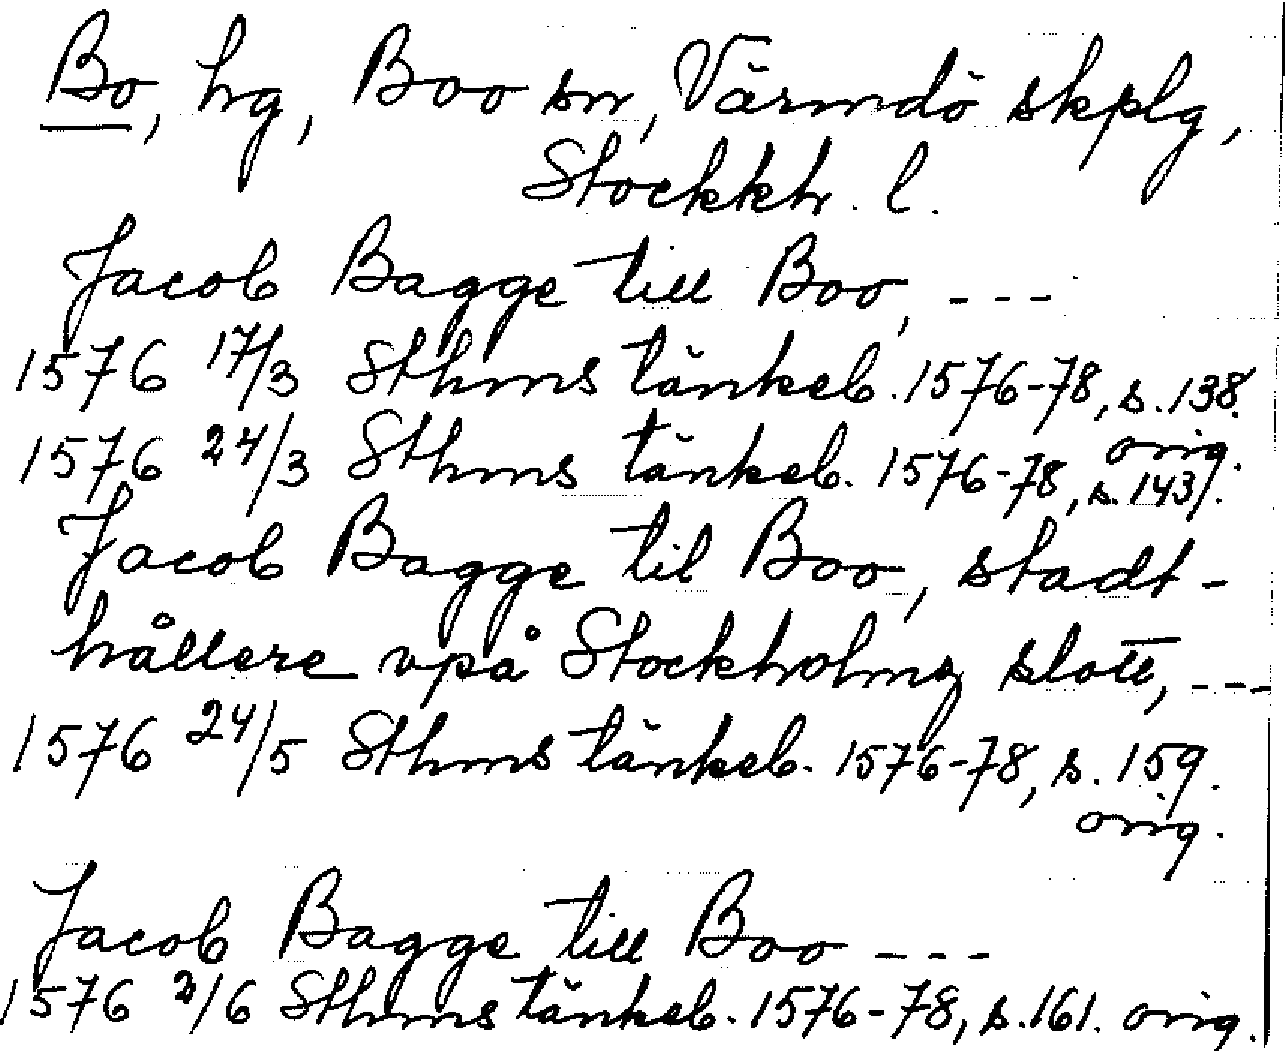 Bo, hg, Boo sn, Värmdö skplg,
Stockkh. l.
Jacob Bagge till Boo, ---
1576 17/3 Sthms tänkeb. 1576-78, s. 138.
orig.
1576 24/3 Sthms tänkeb. 1576-78, s. 143.
Jacob Bagge til Boo, stadt-
hållere vpå Stockholms slott, ---
1576 24/5 Sthms tänkeb. 1576-78, s. 159.
orig.
Jacob Bagge till Boo ---
1576 2/6 Sthms tänkeb. 1576-78, s. 161. orig.